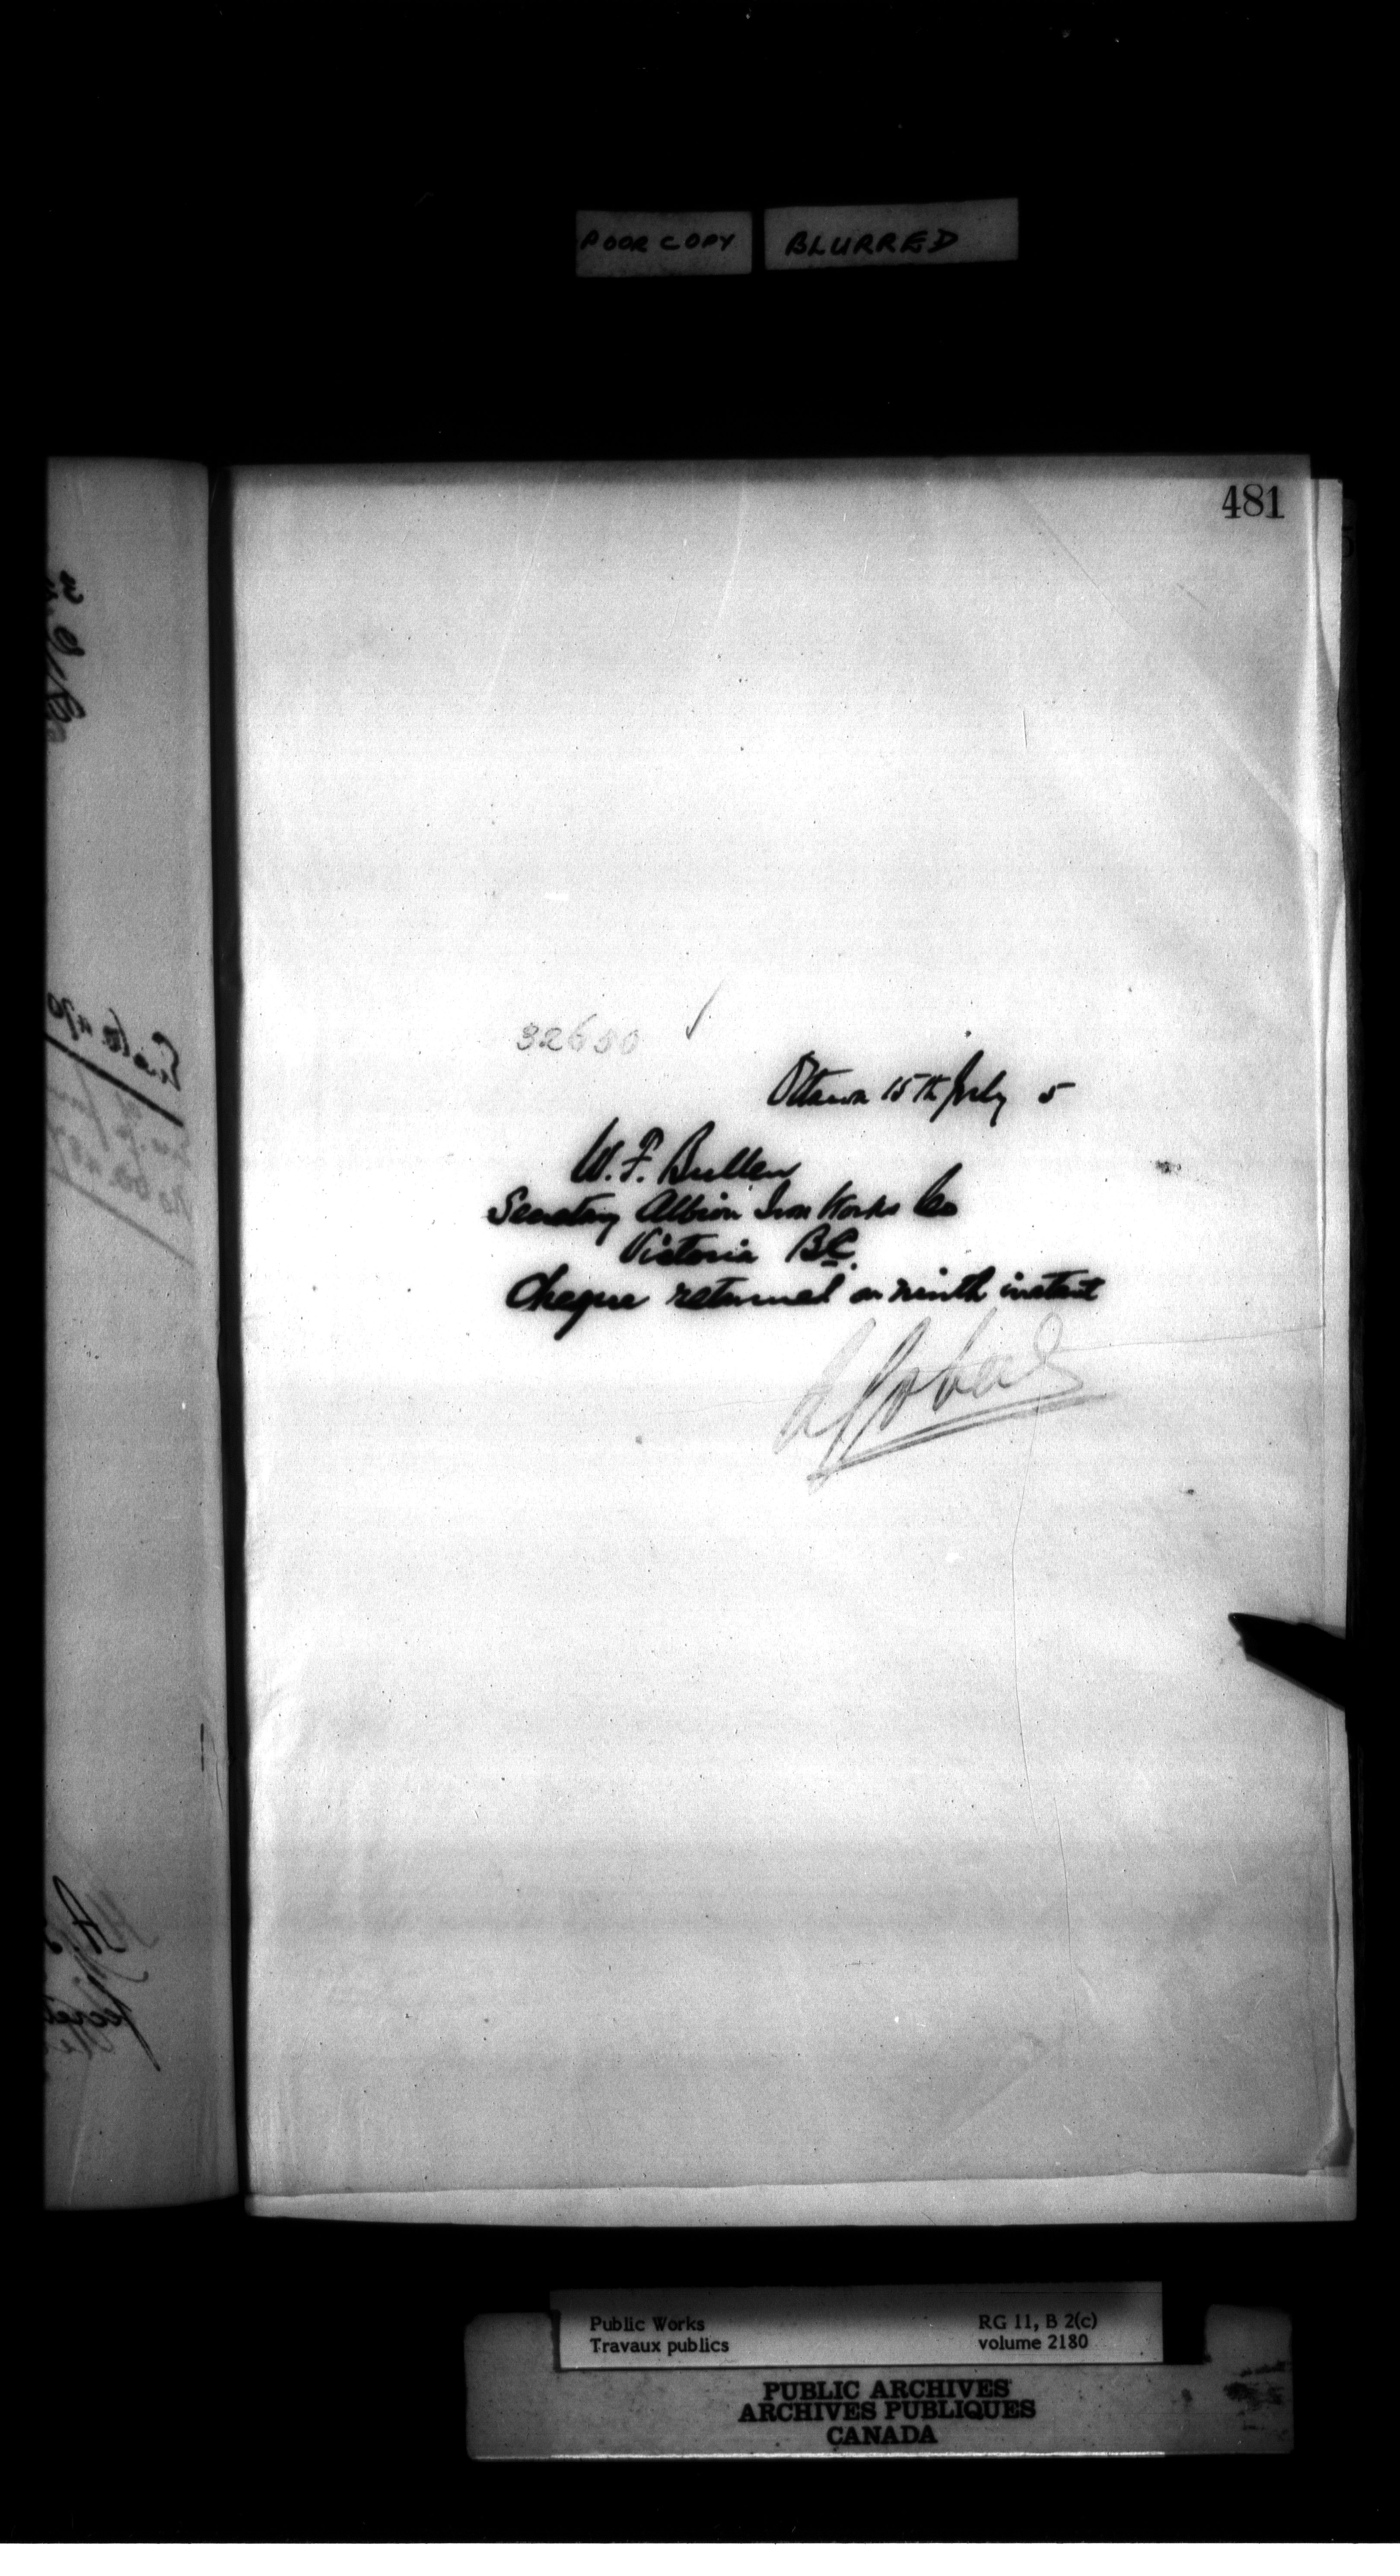 POOR COPY BLURRED
481
32650
Ottawa 15th July 5
W. F. Bullen
Secretary Albion Iron Works Co
Victoria BC.
Cheque returned on ninth instant
Public Works RG 11, B 2(c)
Travaux publics volume 2180
PUBLIC ARCHIVES
ARCHIVES PUBLIQUES
CANADA